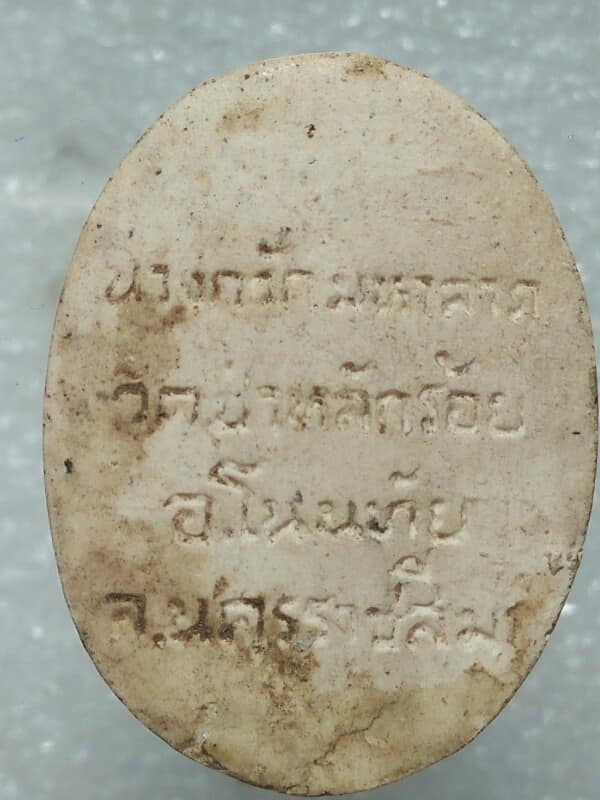 นางกวัก มหาลาภ
วัดป่าหลักร้อย
อ.โนนทัย
จ.นครราชสีมา